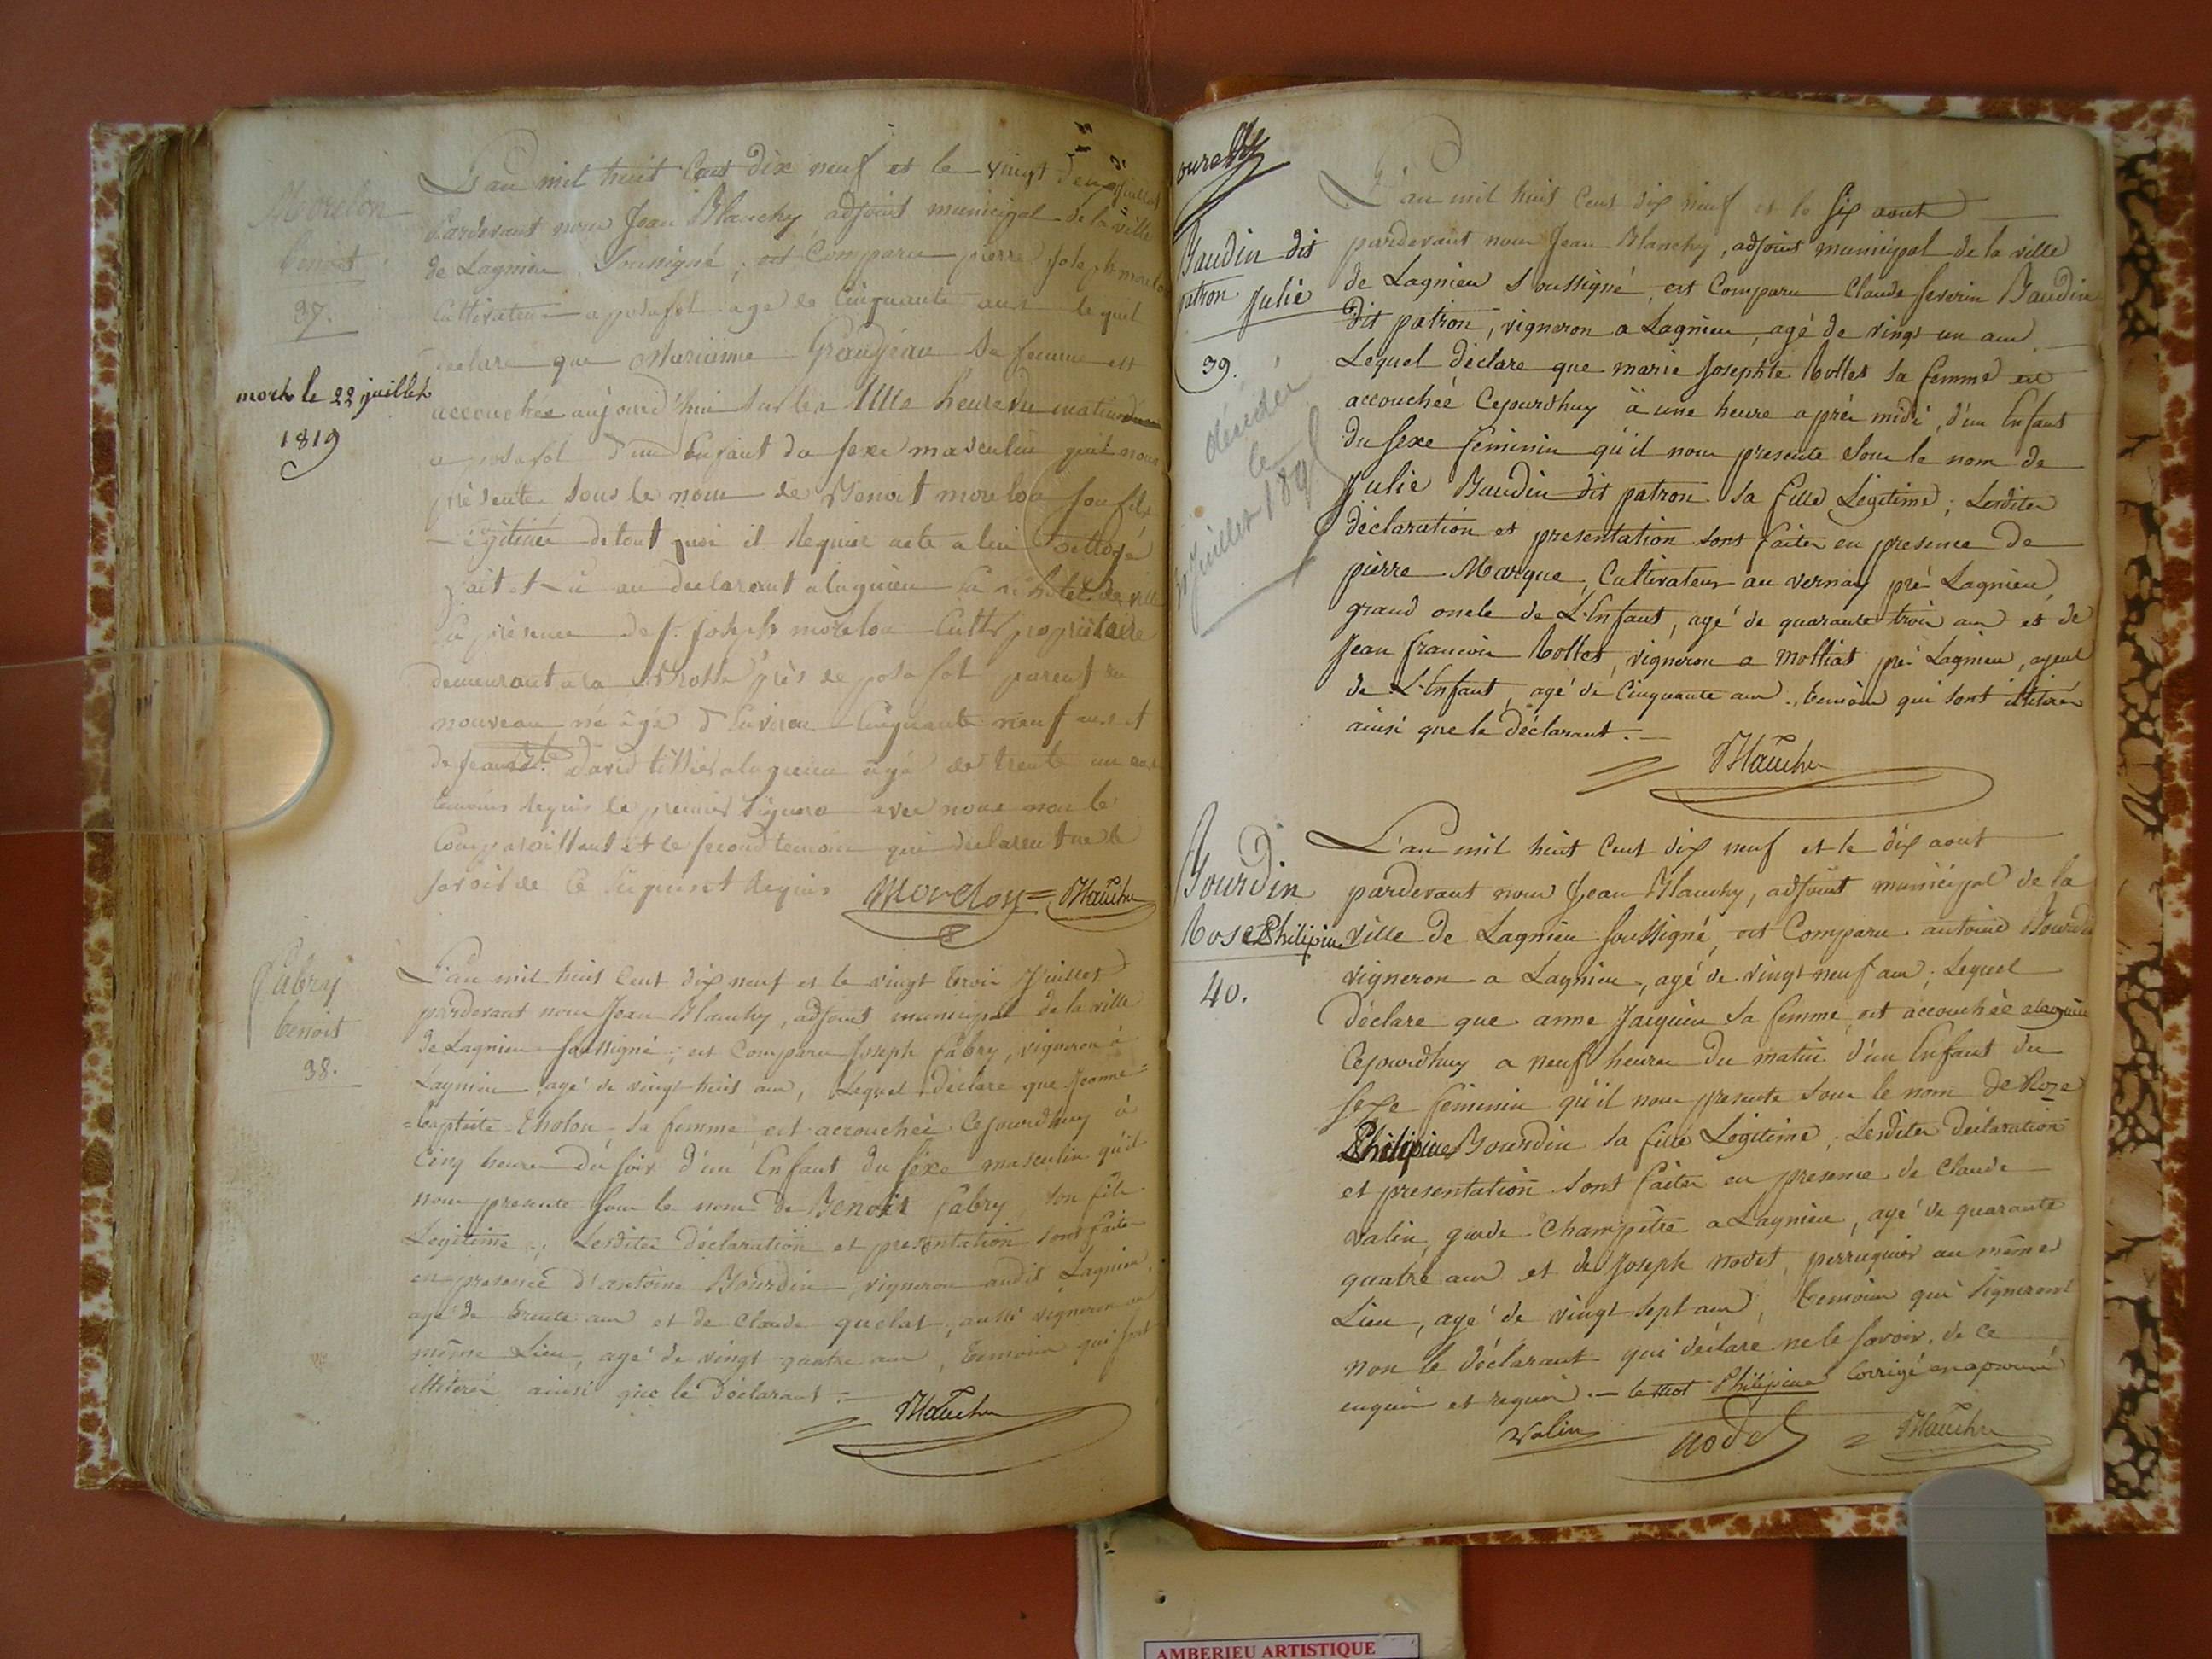 Morelon
benoit
37.
mort le 22 juillet
1819
L'an mil huit Cent dix neuf et le vingt deux juillet
Pardevant nous Jean Blanchy, adjoint municipal de la ville
de Lagnieu Soussigné, est Comparu pierre joseph morelon
Cultivateur a posafol agé de Cinquante ans lequel
declare que Marianne Grandjean Sa femme est
accouchée aujourd'hui sur les heure du matin
a posafol d'un Enfant du sexe masculin qu'il nous
présente sous le nom de Benoit morelon son fils
légitime de tout quoi il Requier acte a lui octroyé
fait et lu au declarant a lagnieu a l'hotel de ville
En présence de f. joseph morelon Cultr propriétaire
demeurant a la près de posafol parent du
nouveau né âgé d'Environ Cinquante neuf ans et
de jean David tissier a lagnieu agé de trente un ans
temoins Requis le premier Signera avec nous non le
Comparaissant et le second temoin qui declarent ne le
savoir de Ce Enquis et Requis Morelon = Blanchy
fabry
benoit
38.
L'an mil huit Cent dix neuf et le vingt trois Juillet
pardevant nous Jean Blanchy, adjoint municipal de la ville
de Lagnieu soussigné, est Comparu Joseph fabry, vigneron à
Lagnieu, agé de vingt huit ans, Lequel déclare que Jeanne=
=baptiste Tholon sa femme est accouchée Cejourdhuy à
Cinq heures du soir d'un Enfant du sexe masculin qu'il
nous presente sous le nom de Benoit fabry son fils
Legitime; Lesdites déclaration et presentation sont faites
en presence d'antoine Bourdin, vigneron audit Lagnieu,
agé de trente ans et de Claude quelat, aussi vigneron au
même Lieu, agé de vingt quatre ans, temoins qui sont
illitérés ainsi que le déclarant.
Blanchy
Baudin dit
patron Julie
39.
décédée
le
juillet 189
L'an mil huit Cent dix neuf et le six aout
pardevant nous Jean Blanchy, adjoint municipal de la ville
de Lagnieu soussigné, est Comparu Claude severin Baudin
dit patron, vigneron a Lagnieu, agé de vingt un ans
Lequel déclare que marie Josephte bollet sa femme est
accouchée Cejourdhuy à une heure après midi, d'un Enfant
du sexe feminin qu'il nous presente sous le nom de
Julie Baudin dit patron sa fille Légitime; Lesdites
déclaration et presentation sont faites en presence de
pierre Marque, Cultivateur au vernay prè Lagnieu,
grand oncle de L'Enfant, agé de quarante trois ans et de
Jean francois bollet, vigneron a Mollias prè Lagnieu, ayeul
de L'Enfant, agé de Cinquante ans, temoins qui sont illiterés
ainsi que le déclarant.
Blanchy
Bourdin
Rose Philipine
40.
L'an mil huit Cent dix neuf et le dix aout
pardevant nous Jean Blanchy, adjoint municipal de la
ville de Lagnieu soussigné, est Comparu antoine Bourdin
vigneron a Lagnieu, agé de vingt neuf ans, Lequel
déclare que anne Jacquin sa femme est accouchée a lagnieu
Cejourdhuy a neuf heures du matin d'un Enfant du
sexe feminin qu'il nous presente sous le nom de Roze
Philipine Bourdin sa fille Légitime. Lesdites déclaration
et presentation sont faites en presence de Claude
valin, garde Champêtre a Lagnieu, agé de quarante
quatre ans et de Joseph nodet, perruquier au même
Lieu, agé de vingt sept ans, temoins qui signeront
non le déclarant qui déclare ne le savoir, de ce
enquis et requis. le mot Philipine Corrigé en aprouvé
Valin nodet Blanchy
AMBERIEU ARTISTIQUE